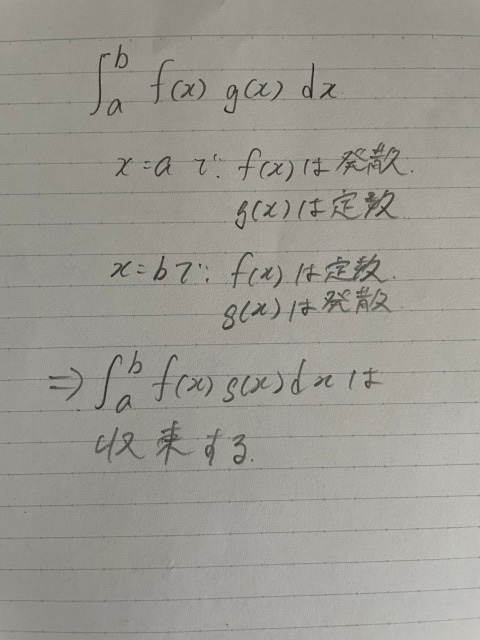 ∫_a^b f(x) g(x) dx
x=a で f(x)は発散.
g(x)は定数
x=bで f(x)は定数.
g(x)は発散
⇒ ∫_a^b f(x)g(x)dxは
収束する.